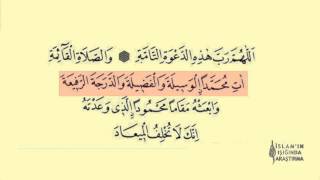 اَللّٰهُمَّ رَبَّ هٰذِهِ الدَّعْوَةِ التَّامَّةِ ۞ وَالصَّلَاةِ الْقَٓائِمَةِ
اٰتِ مُحَمَّدًا اۨلْوَسِيلَةَ وَالْفَضِيلَةَ وَالدَّرَجَةَ الرَّفِيعَةَ
وَابْعَثْهُ مَقَامًا مَحْمُودًا اۨلَّذِى وَعَدْتَهُ
اِنَّكَ لَا تُخْلِفُ الْمِيعَادَ
İSLAM'IN
IŞIĞINDA
ARAŞTIRMA